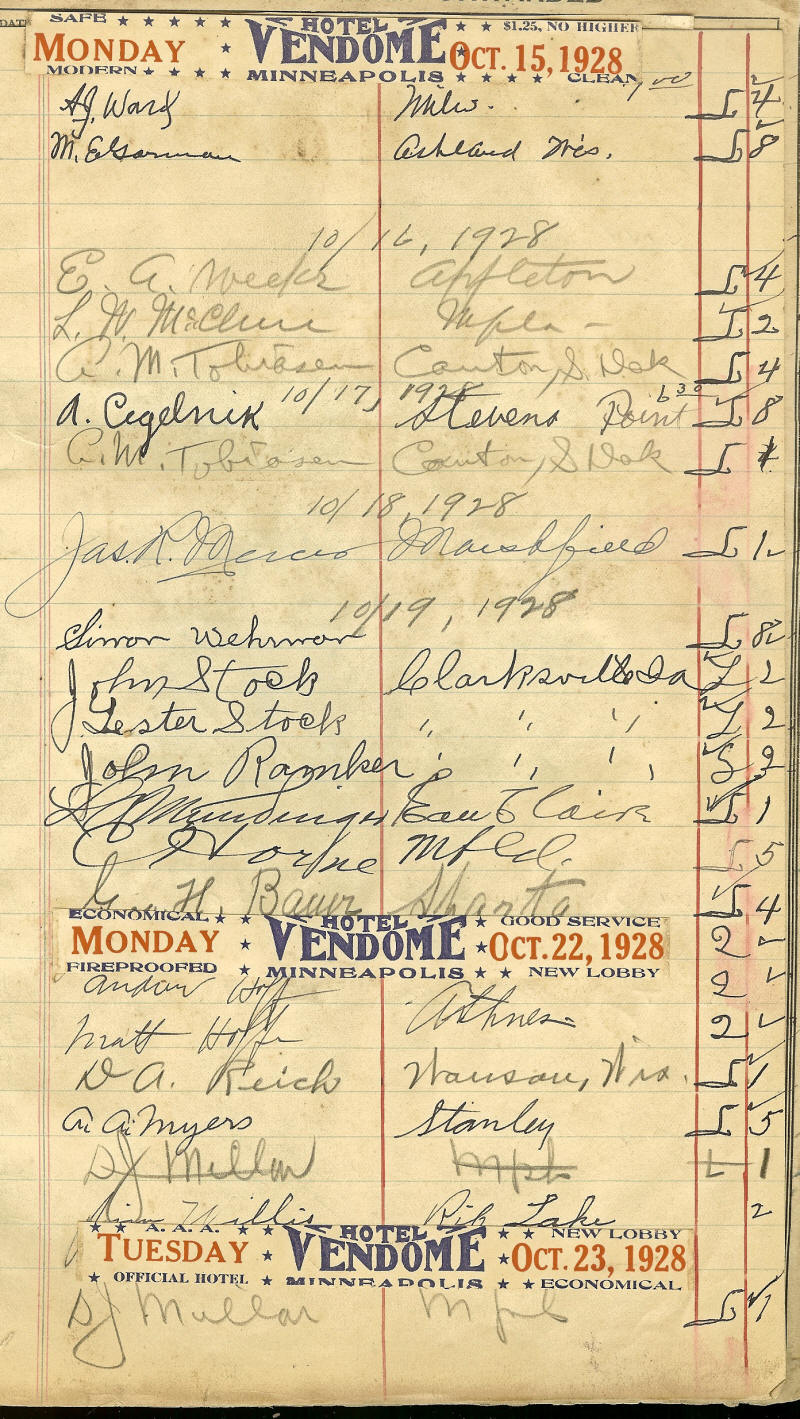 DAT
SAFE ★ ★ ★ ★ HOTEL ★ ★ $1.25, NO HIGHER
MONDAY VENDOME OCT. 15, 1928
MODERN ★ ★ ★ ★ MINNEAPOLIS ★ ★ ★ ★ CLEAN
A.J. Ward Milw. L 4
M. E. Gorman Ashland Wis. L 8
10/16, 1928
E. A. Weeks Appleton L 4
L. W. McClure Mpls - L 2
A. M. Tobiasen Canton, S. Dak L 4
10/17, 1928
6 30
A. Cegelnik Stevens Point L 8
A. M. Tobiasen Canton, S Dak L 1
10/18, 1928
Jas. R. Marshfield L 1
10/19, 1928
Simon Wehrman L 8
John Stock Clarksville Ia L 2
Lester Stock " " " L 2
John Ramker " " " 2
Eau Claire L 1
C Horne Mfld. L 5
G. H. Bauer Sparta L 4
ECONOMICAL ★ ★ HOTEL ★ ★ GOOD SERVICE
MONDAY ★ VENDOME ★ OCT. 22, 1928 2
FIREPROOFED ★ MINNEAPOLIS ★ ★ NEW LOBBY
Andrew Hoff 2
Matt Hoff Athens 2
D A. Reich Wausau, Wis. L 1
A. A. Myers Stanley L 5
D J Millar Mpls L 1
Willis Rib Lake 2
★ A. A. A. ★ ★ HOTEL ★ ★ NEW LOBBY
TUESDAY ★ VENDOME ★ OCT. 23, 1928
★ OFFICIAL HOTEL ★ MINNEAPOLIS ★ ★ ECONOMICAL
D J Millar Mpls L 1